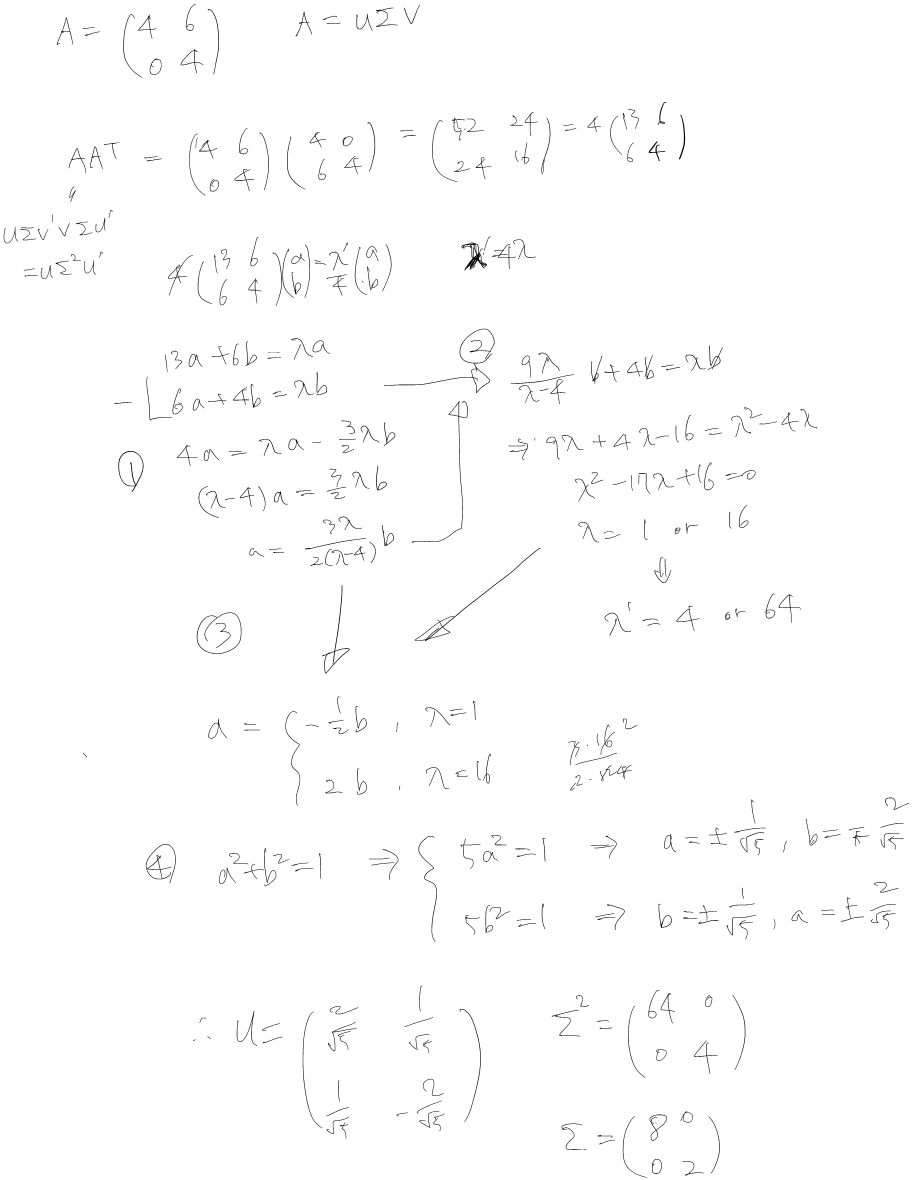 A = (4 6; 0 4)   A = UΣV
AAT = (4 6; 0 4)(4 0; 6 4) = (52 24; 24 16) = 4(13 6; 6 4)
UΣV'VΣU'
= UΣ²U'
4(13 6; 6 4)(a; b) = λ'/4 (a; b)   λ' = 4λ
13a + 6b = λa
- 6a + 4b = λb
① 4a = λa - 3/2 λb
(λ-4)a = 3/2 λb
a = 3λ/2(λ-4) b
② 9λ/λ-4 b + 4b = λb
⇒ 9λ + 4λ - 16 = λ² - 4λ
λ² - 17λ + 16 = 0
λ = 1 or 16
⇓
λ' = 4 or 64
③
a = { -1/2 b , λ=1
2b , λ=16   3·16²/2·
④ a²+b²=1 ⇒ { 5a²=1 ⇒ a = ± 1/√5 , b = ∓ 2/√5
5b²=1 ⇒ b = ± 1/√5 , a = ± 2/√5
∴ U = (2/√5 1/√5; 1/√5 -2/√5)   Σ² = (64 0; 0 4)
Σ = (8 0; 0 2)